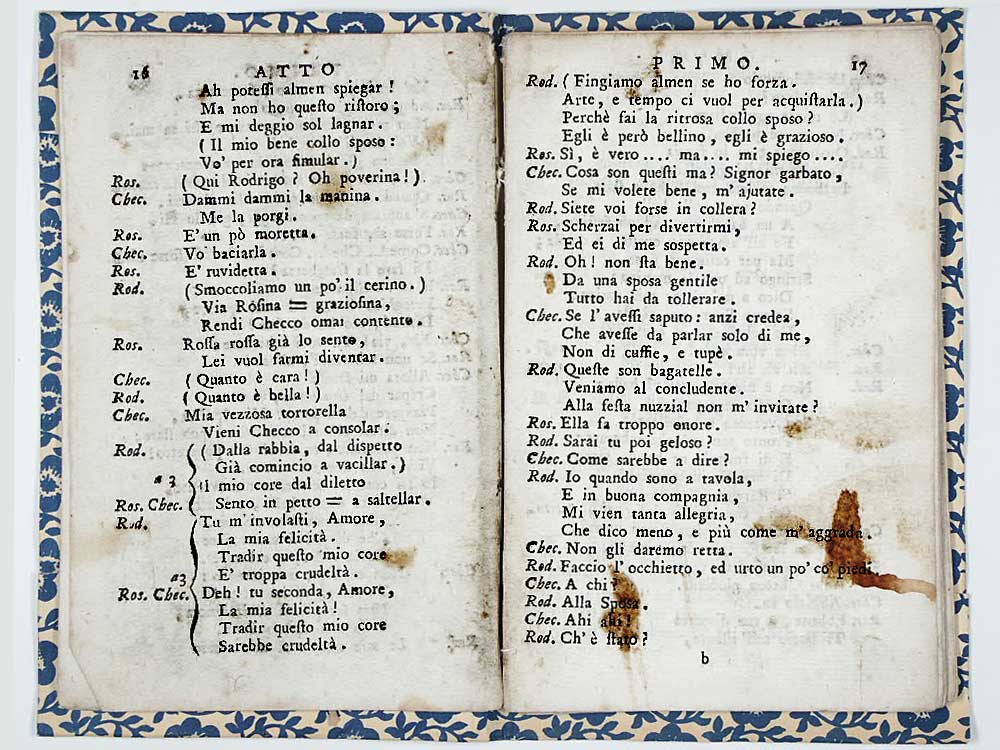 16 ATTO
Ah potessi almen spiegar !
Ma non ho questo ristoro ;
E mi deggio sol lagnar .
( Il mio bene collo sposo :
Vo' per ora simular . )
Ros. ( Qui Rodrigo ? Oh poverina ! )
Chec. Dammi dammi la manina .
Me la porgi .
Ros. E' un pò moretta .
Chec. Vo' baciarla .
Ros. E' ruvidetta .
Rod. ( Smoccoliamo un po' il cerino . )
Via Rosina = graziosina ,
Rendi Checco omai contento .
Ros. Rossa rossa già lo sento ,
Lei vuol farmi diventar .
Chec. ( Quanto è cara ! )
Rod. ( Quanto è bella ! )
Chec. Mia vezzosa tortorella
Vieni Checco a consolar .
Rod. ( Dalla rabbia , dal dispetto
Già comincio a vacillar . )
a 3 Il mio core dal diletto
Ros. Chec. Sento in petto = a saltellar .
Rod. Tu m' involasti , Amore ,
La mia felicità .
Tradir questo mio core
E' troppa crudeltà .
a3
Ros. Chec. Deh ! tu seconda , Amore ,
La mia felicità !
Tradir questo mio core
Sarebbe crudeltà .
PRIMO. 17
Rod. ( Fingiamo almen se ho forza .
Arte , e tempo ci vuol per acquistarla . )
Perchè fai la ritrosa collo sposo ?
Egli è però bellino , egli è grazioso .
Ros. Sì , è vero .... ma .... mi spiego ....
Chec. Cosa son questi ma ? Signor garbato ,
Se mi volete bene , m' ajutate .
Rod. Siete voi forse in collera ?
Ros. Scherzai per divertirmi ,
Ed ei di me sospetta .
Rod. Oh ! non sta bene .
Da una sposa gentile
Tutto hai da tollerare .
Chec. Se l' avessi saputo : anzi credea ,
Che avesse da parlar solo di me ,
Non di cuffie , e tupè .
Rod. Queste son bagatelle .
Veniamo al concludente .
Alla festa nuzzial non m' invitate ?
Ros. Ella fa troppo onore .
Rod. Sarai tu poi geloso ?
Chec. Come sarebbe a dire ?
Rod. Io quando sono a tavola ,
E in buona compagnia ,
Mi vien tanta allegria ,
Che dico meno , e più come m' aggrada .
Chec. Non gli daremo retta .
Rod. Faccio l' occhietto , ed urto un po' co' piedi .
Chec. A chi ?
Rod. Alla Sposa .
Chec. Ahi ahi !
Rod. Ch' è stato ?
b